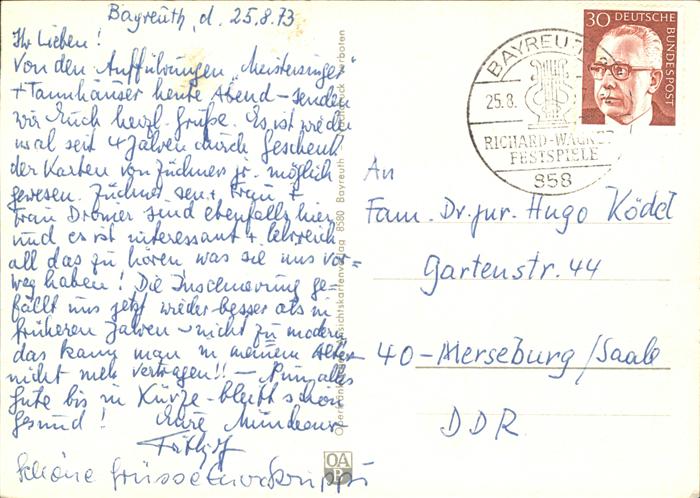 Bayreuth, d. 25.8.73
Ihr Lieben!
Von den Aufführungen "Meistersinger"
+ Tannhäuser heute Abend – senden
wir Euch herzl. Grüße. Es ist wieder
mal seit 4 Jahren durch Geschenk
der Karten von Züchners jr. möglich
gewesen. Züchner sen. + Frau +
Frau Dromer sind ebenfalls hier
und es ist interessant + lehrreich
all das zu hören was sie uns vor=
weg haben! Die Inscenierung ge=
fällt uns jetzt wieder besser als in
früheren Jahren – nicht zu modern,
das kann man in meinem Alter
nicht mehr vertragen!! – Nun alles
Gute bis in Kürze – bleibt schön
gesund! Eure Mündener
Schöne Grüsse
30 DEUTSCHE
BUNDESPOST
BAYREUTH
25.8.
RICHARD-WAGNER
FESTSPIELE
858
An
Fam. Dr. jur. Hugo Ködel
Gartenstr. 44
40-Merseburg/Saale
DDR
8580 Bayreuth
OA
B